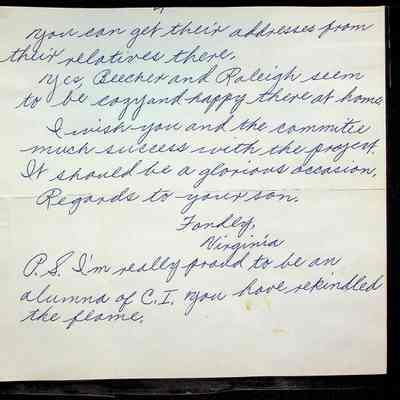 you can get their addresses from
their relatives there.
Yes, Beecher and Raleigh seem
to be cozy and happy there at home.
I wish you and the commitie
much success with the project.
It should be a glorious occasion.
Regards to your son.
Fondly,
Virginia
P.S. I'm really proud to be an
alumna of C.I. You have rekindled
the flame.